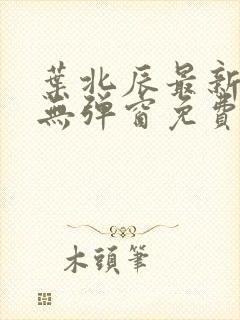 葉北辰最新
無彈窗免費
木頭筆